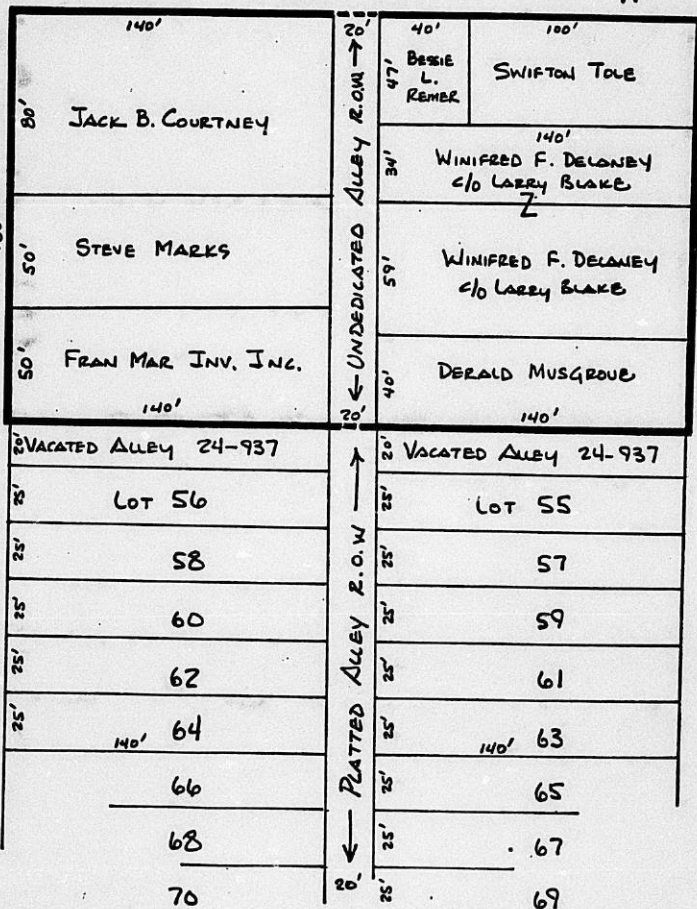 140'
80'
JACK B. COURTNEY
50'
STEVE MARKS
50'
FRAN MAR INV. INC.
140'
20'
UNDEDICATED ALLEY R.O.W.
20'
40'
47'
BESSIE
L.
REMER
100'
SWIFTON TOLE
140'
34'
WINIFRED F. DELANEY
c/o LARRY BLAKE
Z
59'
WINIFRED F. DELANEY
c/o LARRY BLAKE
40'
DERALD MUSGROVE
140'
20' VACATED ALLEY 24-937
25' LOT 56
25' 58
25' 60
25' 62
25' 64
140'
66
68
70
PLATTED ALLEY R.O.W
20'
20' VACATED ALLEY 24-937
25' LOT 55
25' 57
25' 59
25' 61
25' 63
140'
25' 65
25' 67
25' 69